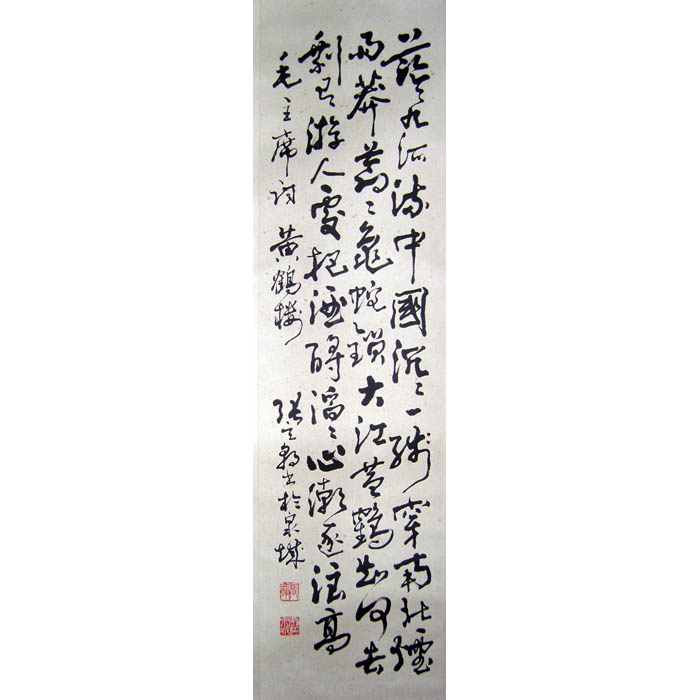 茫々九派流中國沉々一線穿南北煙
雨莽蒼々龜蛇鎖大江黃鶴知何去
剩有游人處把酒酹滔々心潮逐浪高
毛主席詞 黃鶴樓 張書於泉城